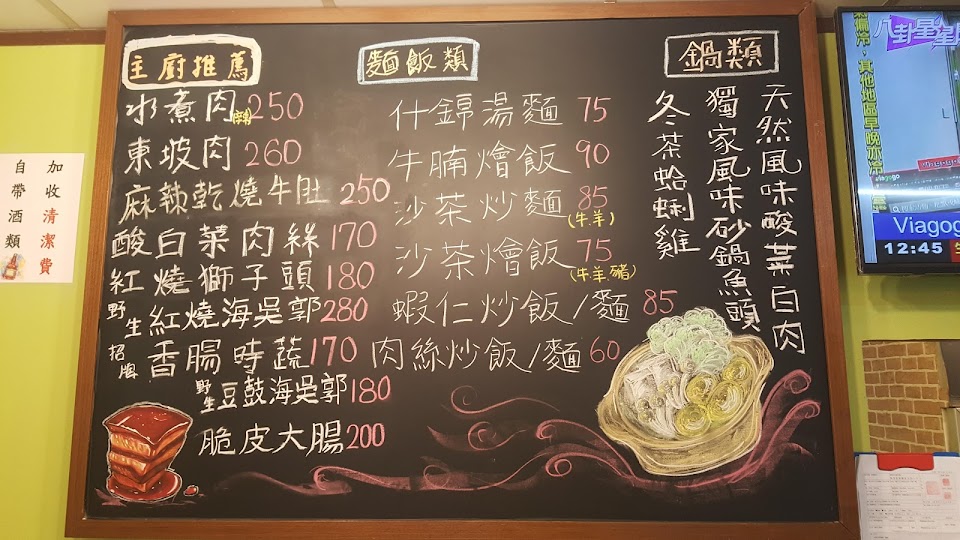 主廚推薦
水煮肉 250
東坡肉 260
麻辣乾燒牛肚 250
酸白菜肉絲 170
紅燒獅子頭 180
野生 紅燒海吳郭 280
招牌 香腸時蔬 170
野生 豆鼓海吳郭 180
脆皮大腸 200
麵飯類
什錦湯麵 75
牛腩燴飯 90
沙茶炒麵 85
(牛.羊)
沙茶燴飯 75
(牛.羊.豬)
蝦仁炒飯/麵 85
肉絲炒飯/麵 60
鍋類
天然風味酸菜白肉
獨家風味砂鍋魚頭
冬茶蛤蜊雞
加收清潔費
自帶酒類
八卦星
其他地區早晚亦冷
Viagog
12:45